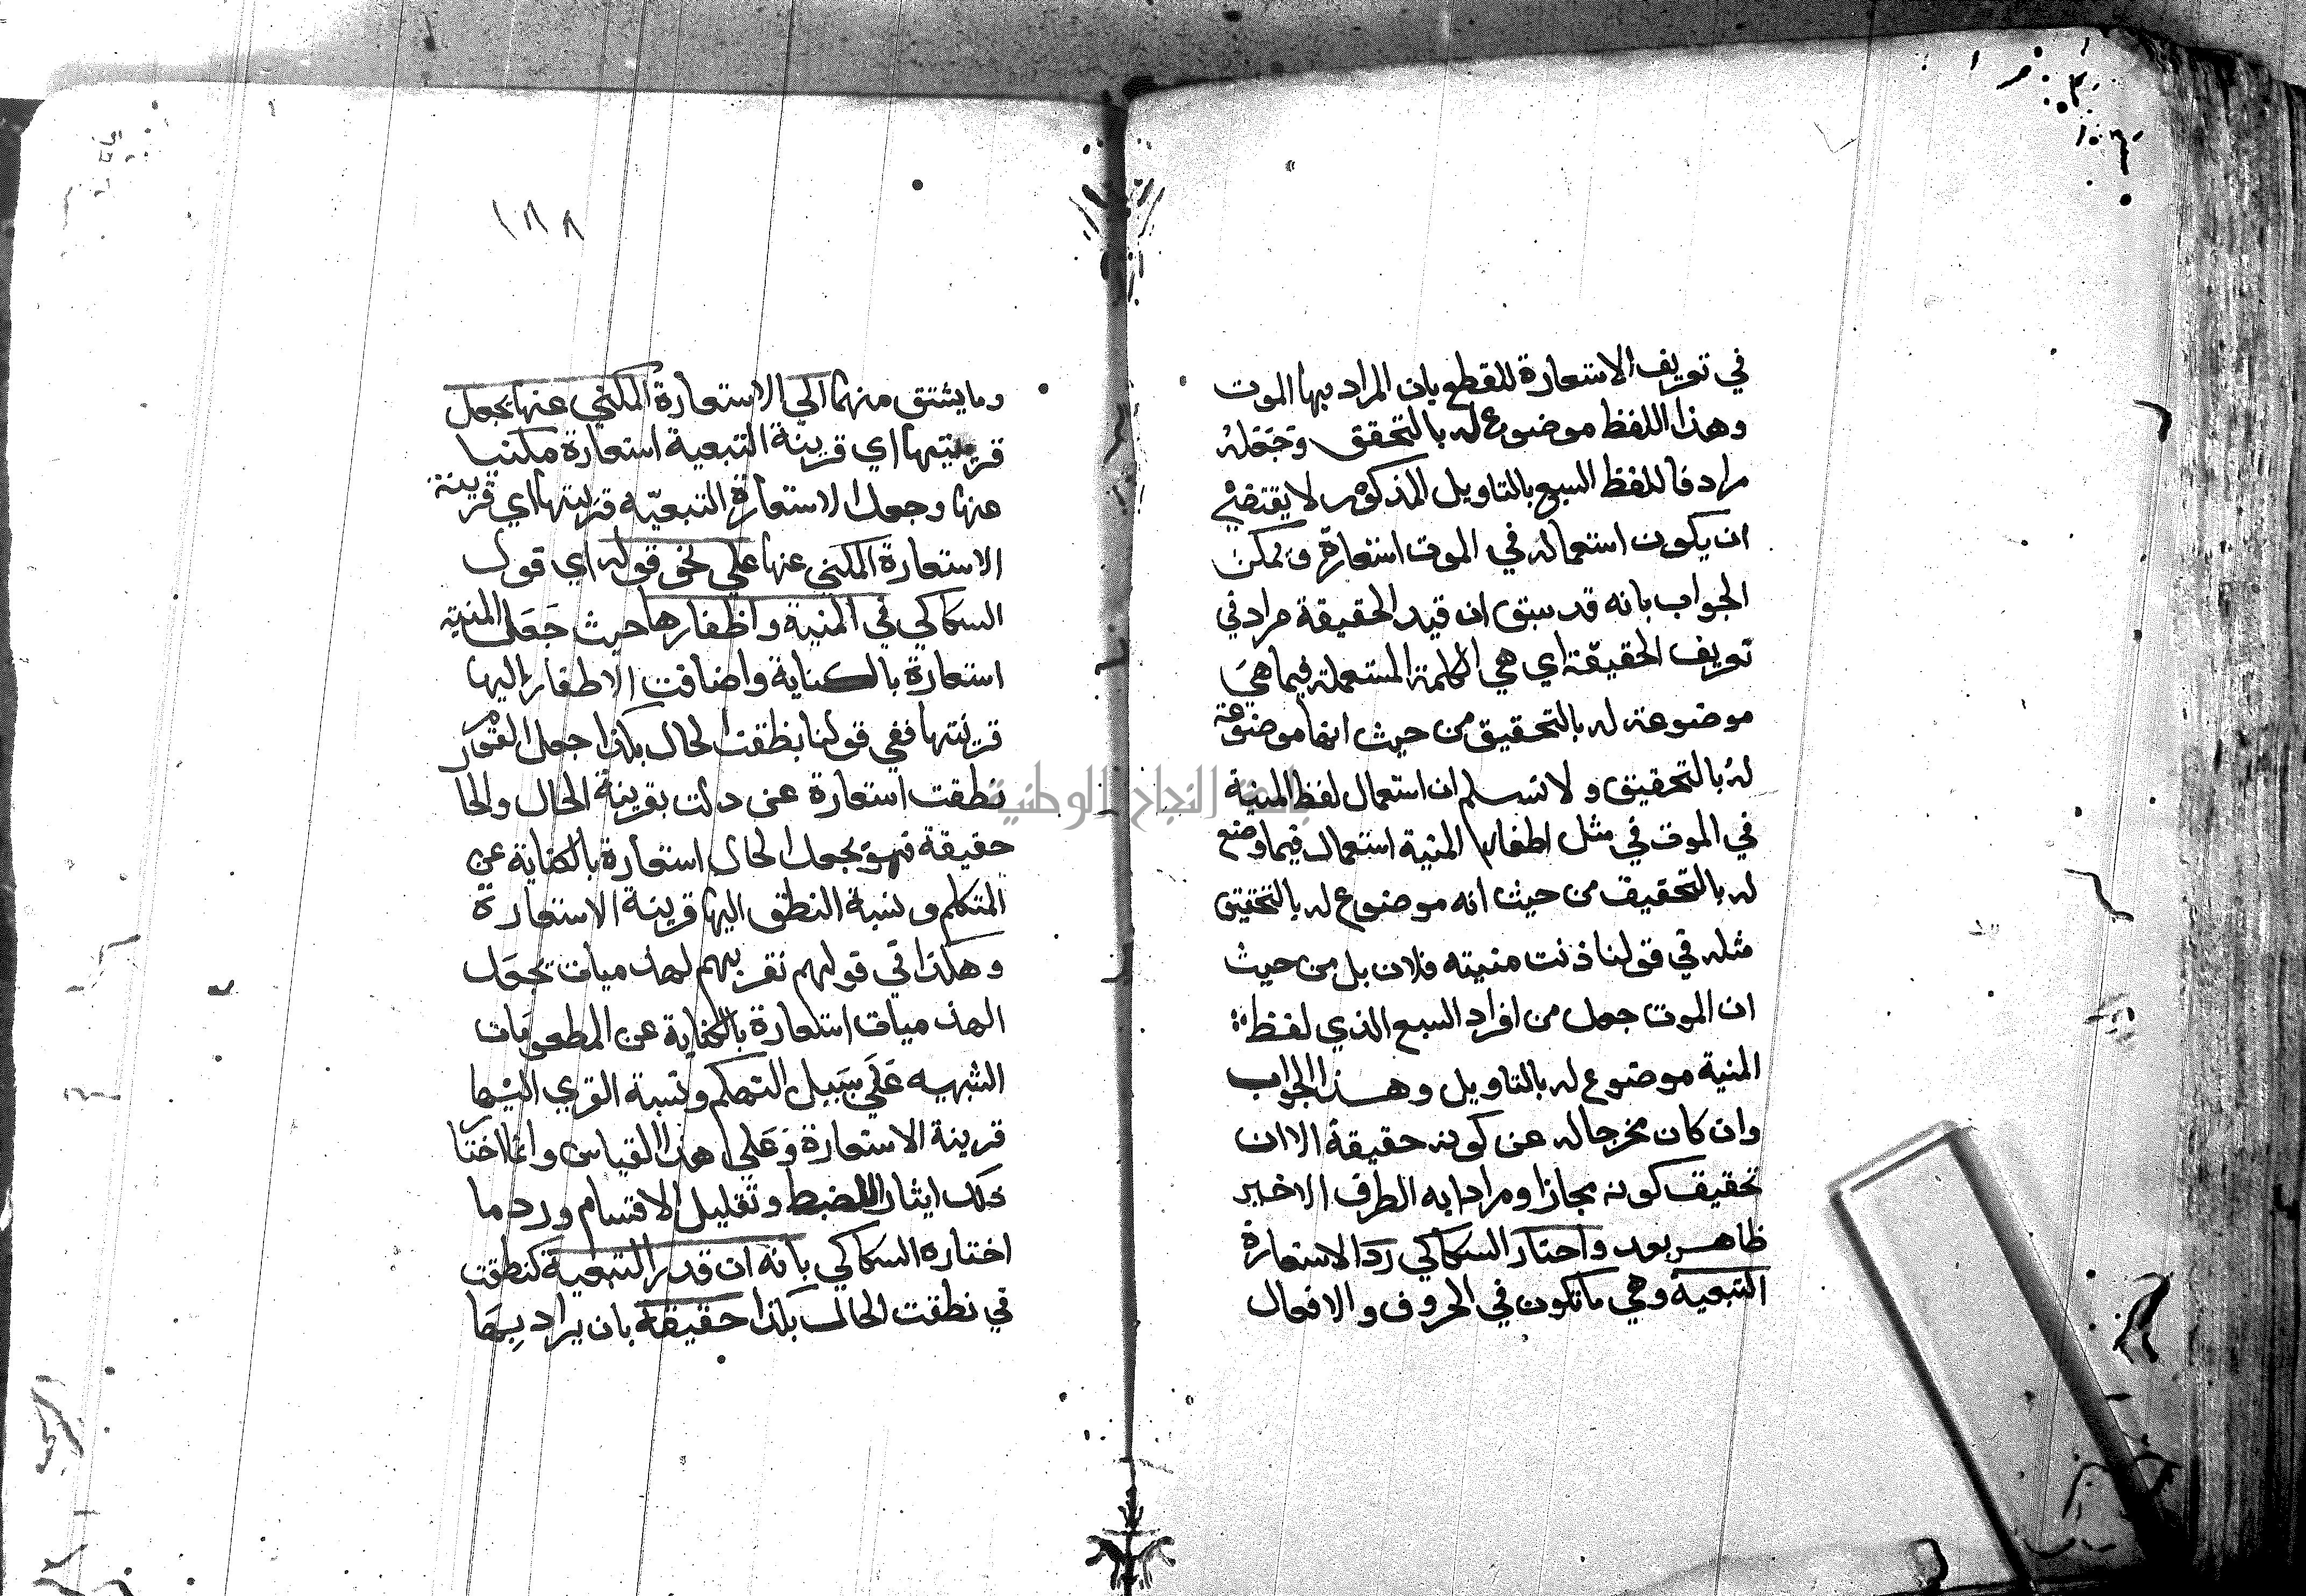 في تعريف الاستعارة للقطع بان المراد بها الموت
وهذا اللفظ موضوع له بالتحقق وجعله
مرادفا للفظ السبع بالتاويل المذكور لا يقتضي
ان يكون استعماله في الموت استعارة ويمكن
الجواب بانه قد سبق ان قيد الحقيقة مراد في
تعريف الحقيقة اي هي الكلمة المستعملة فيما هي
موضوعة له بالتحقيق من حيث انها موضوعة
له بالتحقيق ولا نسلم ان استعمال لفظ المنية
في الموت في مثل اظفار المنية استعمال فيما وضع
له بالتحقيق من حيث انه موضوع له بالتحقيق
مثله في قولنا ذنت منيته فلان بل من حيث
ان الموت جعل من افراد السبع الذي لفظ
المنية موضوع له بالتاويل وهذا الجواب
وان كان مخرجا له عن كونه حقيقة الا ان
تحقيق كونه مجازا ومرادا به الطرف الاخير
ظاهر بعد واختار السكاكي رد الاستعارة
التبعية وهي ما تكون في الحروف والافعال
١٨٨
وما يشتق منهما الي الاستعارة المكني عنها بجعل
قرينتها اي قرينة التبعية استعارة مكنيا
عنها وجعل الاستعارة التبعيّة قرينتها اي قرينة
الاستعارة المكني عنها علي نحو قوله اي قول
السكاكي في المنية واظفارها حيث جَعَل المنية
استعارة بالكناية واضافت الاظفار اليها
قرينتها ففي قولنا نطقت الحال بكذا جعل القوم
نطقت استعارة عن دلت بقرينة الحال والحا
حقيقة فهو يجعل الحال استعارة بالكناية عن
المتكلم ونسبة النطق اليها قرينة الاستعارة
وهكذا في قولهم نقريهم لهذميات تجعل
الهذميات استعارة بالكناية عن المطعومات
الشهيه عَلَي سَبيل التهكم ونسبة القري اليها
قرينة الاستعارة وعَلي هذا القياس وانما اختار
ذلك ايثارا للضبط وتقليل الاقسام ورد ما
اختاره السكاكي بانه ان قدر التبعية كنطقت
في نطقت الحال بكذا حقيقة بان يراد بِهَا
جامعة النجاح الوطنية